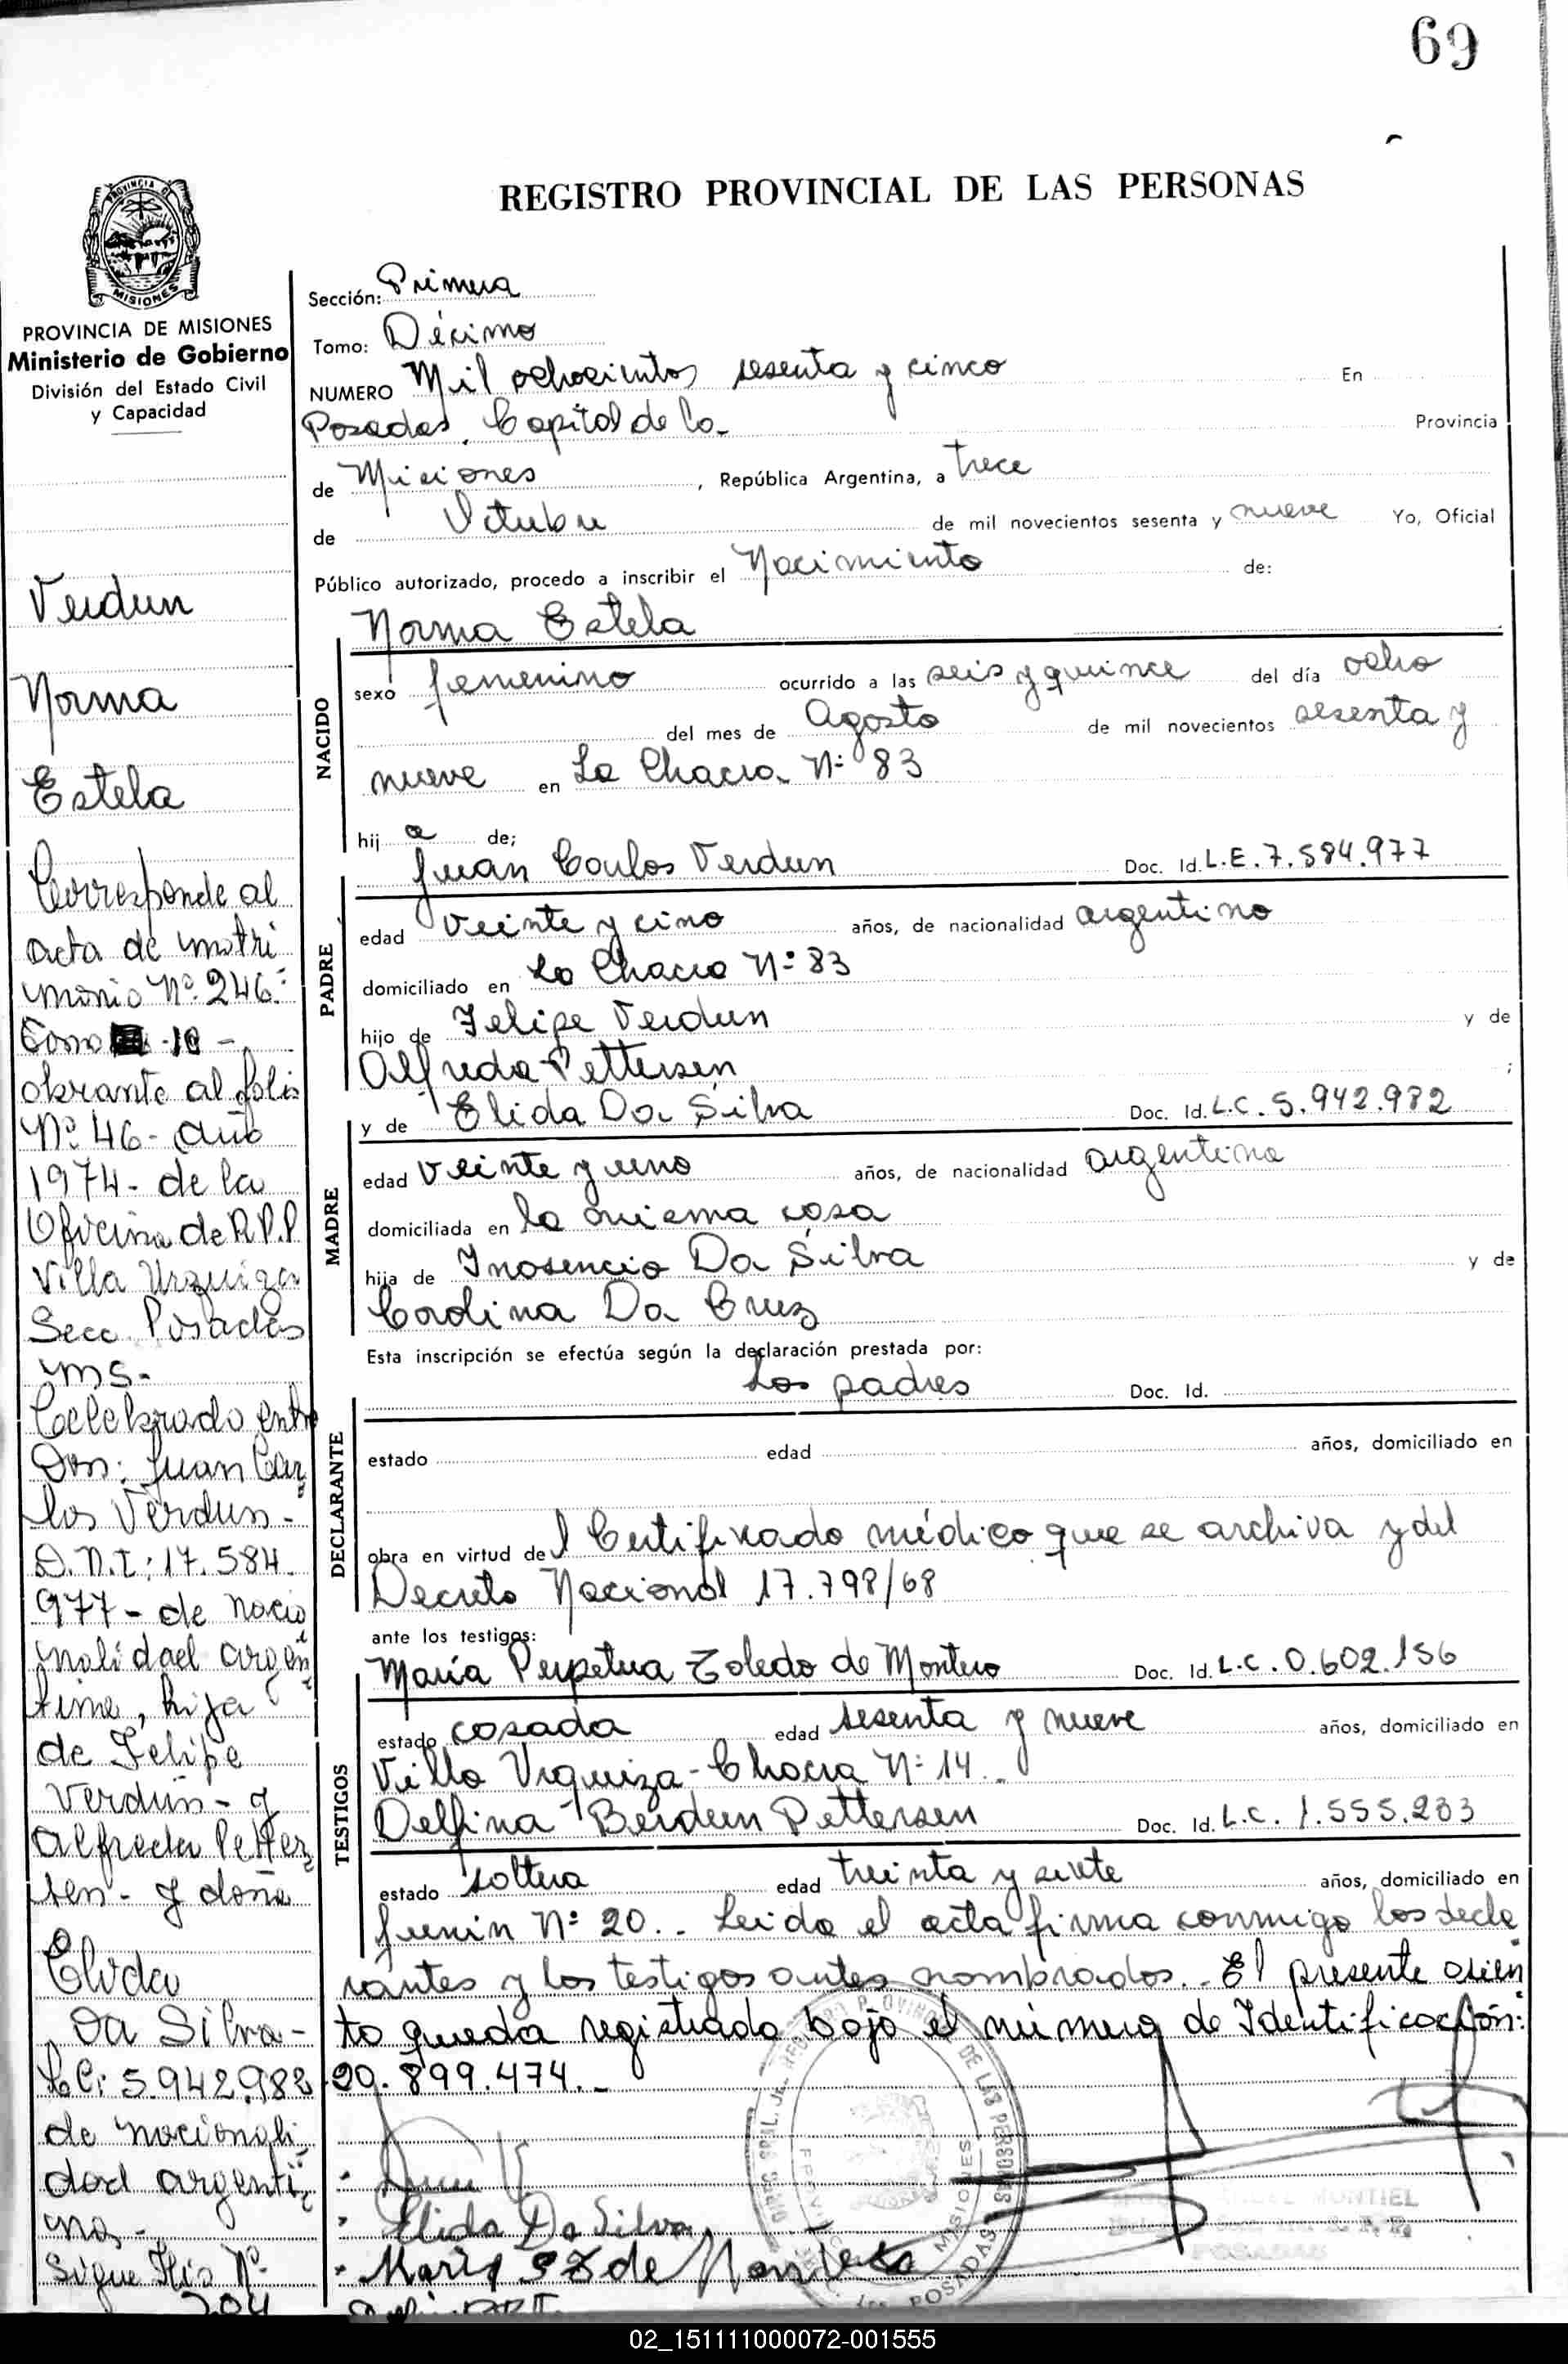 69
REGISTRO PROVINCIAL DE LAS PERSONAS
PROVINCIA DE
MISIONES
PROVINCIA DE MISIONES
Ministerio de Gobierno
División del Estado Civil
y Capacidad
Verdun
Norma
Estela
Corresponde al
acta de matri
monio Nº 246-
Tomo 10 -
obrante al folio
Nº 46 - año
1974 - de la
Oficina de R.P.P
Villa Urquiza
Secc. Posadas
ms.
Celebrado entre
Don: Juan Car
los Verdun -
D.N.I: 17.584.
977 - de nacio
nalidad argen
tina, hijo
de Felipe
Verdun - y
Alfreda Petter
sen - y doña
Elida
Da Silva -
LC: 5.942.982
de nacionali
dad argenti
na -
Sigue Flio Nº
204
Sección: Primera
Tomo: Décimo
NUMERO Mil ochocientos sesenta y cinco En
Posadas, Capital de la Provincia
de Miciones, República Argentina, a trece
de Octubre de mil novecientos sesenta y nueve Yo, Oficial
Público autorizado, procedo a inscribir el Nacimiento de:
Norma Estela
NACIDO
sexo femenino ocurrido a las seis y quince del día ocho
del mes de Agosto de mil novecientos sesenta y
nueve en La Chacra Nº 83
hij a de;
Juan Carlos Verdun Doc. Id. L.E. 7.584.977
PADRE
edad veinte y cinco años, de nacionalidad argentino
domiciliado en La Chacra Nº 83
hijo de Felipe Verdun y de
Alfreda Pettersen ;
y de Elida Da Silva Doc. Id. L.C. 5.942.982
MADRE
edad veinte y uno años, de nacionalidad argentina
domiciliada en la misma casa
hija de Inosencio Da Silva y de
Carolina Da Cruz
Esta inscripción se efectúa según la declaración prestada por:
Los padres Doc. Id.
DECLARANTE
estado edad años, domiciliado en
obra en virtud del Certificado médico que se archiva y del
Decreto Nacional 17.798/68
ante los testigos:
María Perpetua Toledo de Montero Doc. Id. L.C. 0.602.156
TESTIGOS
estado casada edad sesenta y nueve años, domiciliado en
Villa Urquiza - Chacra Nº 14.
Delfina Berdun Pettersen Doc. Id. L.C. 1.555.233
estado soltera edad treinta y siete años, domiciliado en
Junin Nº 20.. Leida el acta firma conmigo los decla
rantes y los testigos antes nombrados. El presente asien
to queda registrado bajo el número de Identificación:
20.899.474.-
Elida Da Silva
Maria P T de Montero
MONTIEL
POSADAS
MISIONES
POSADAS
02_151111000072-001555